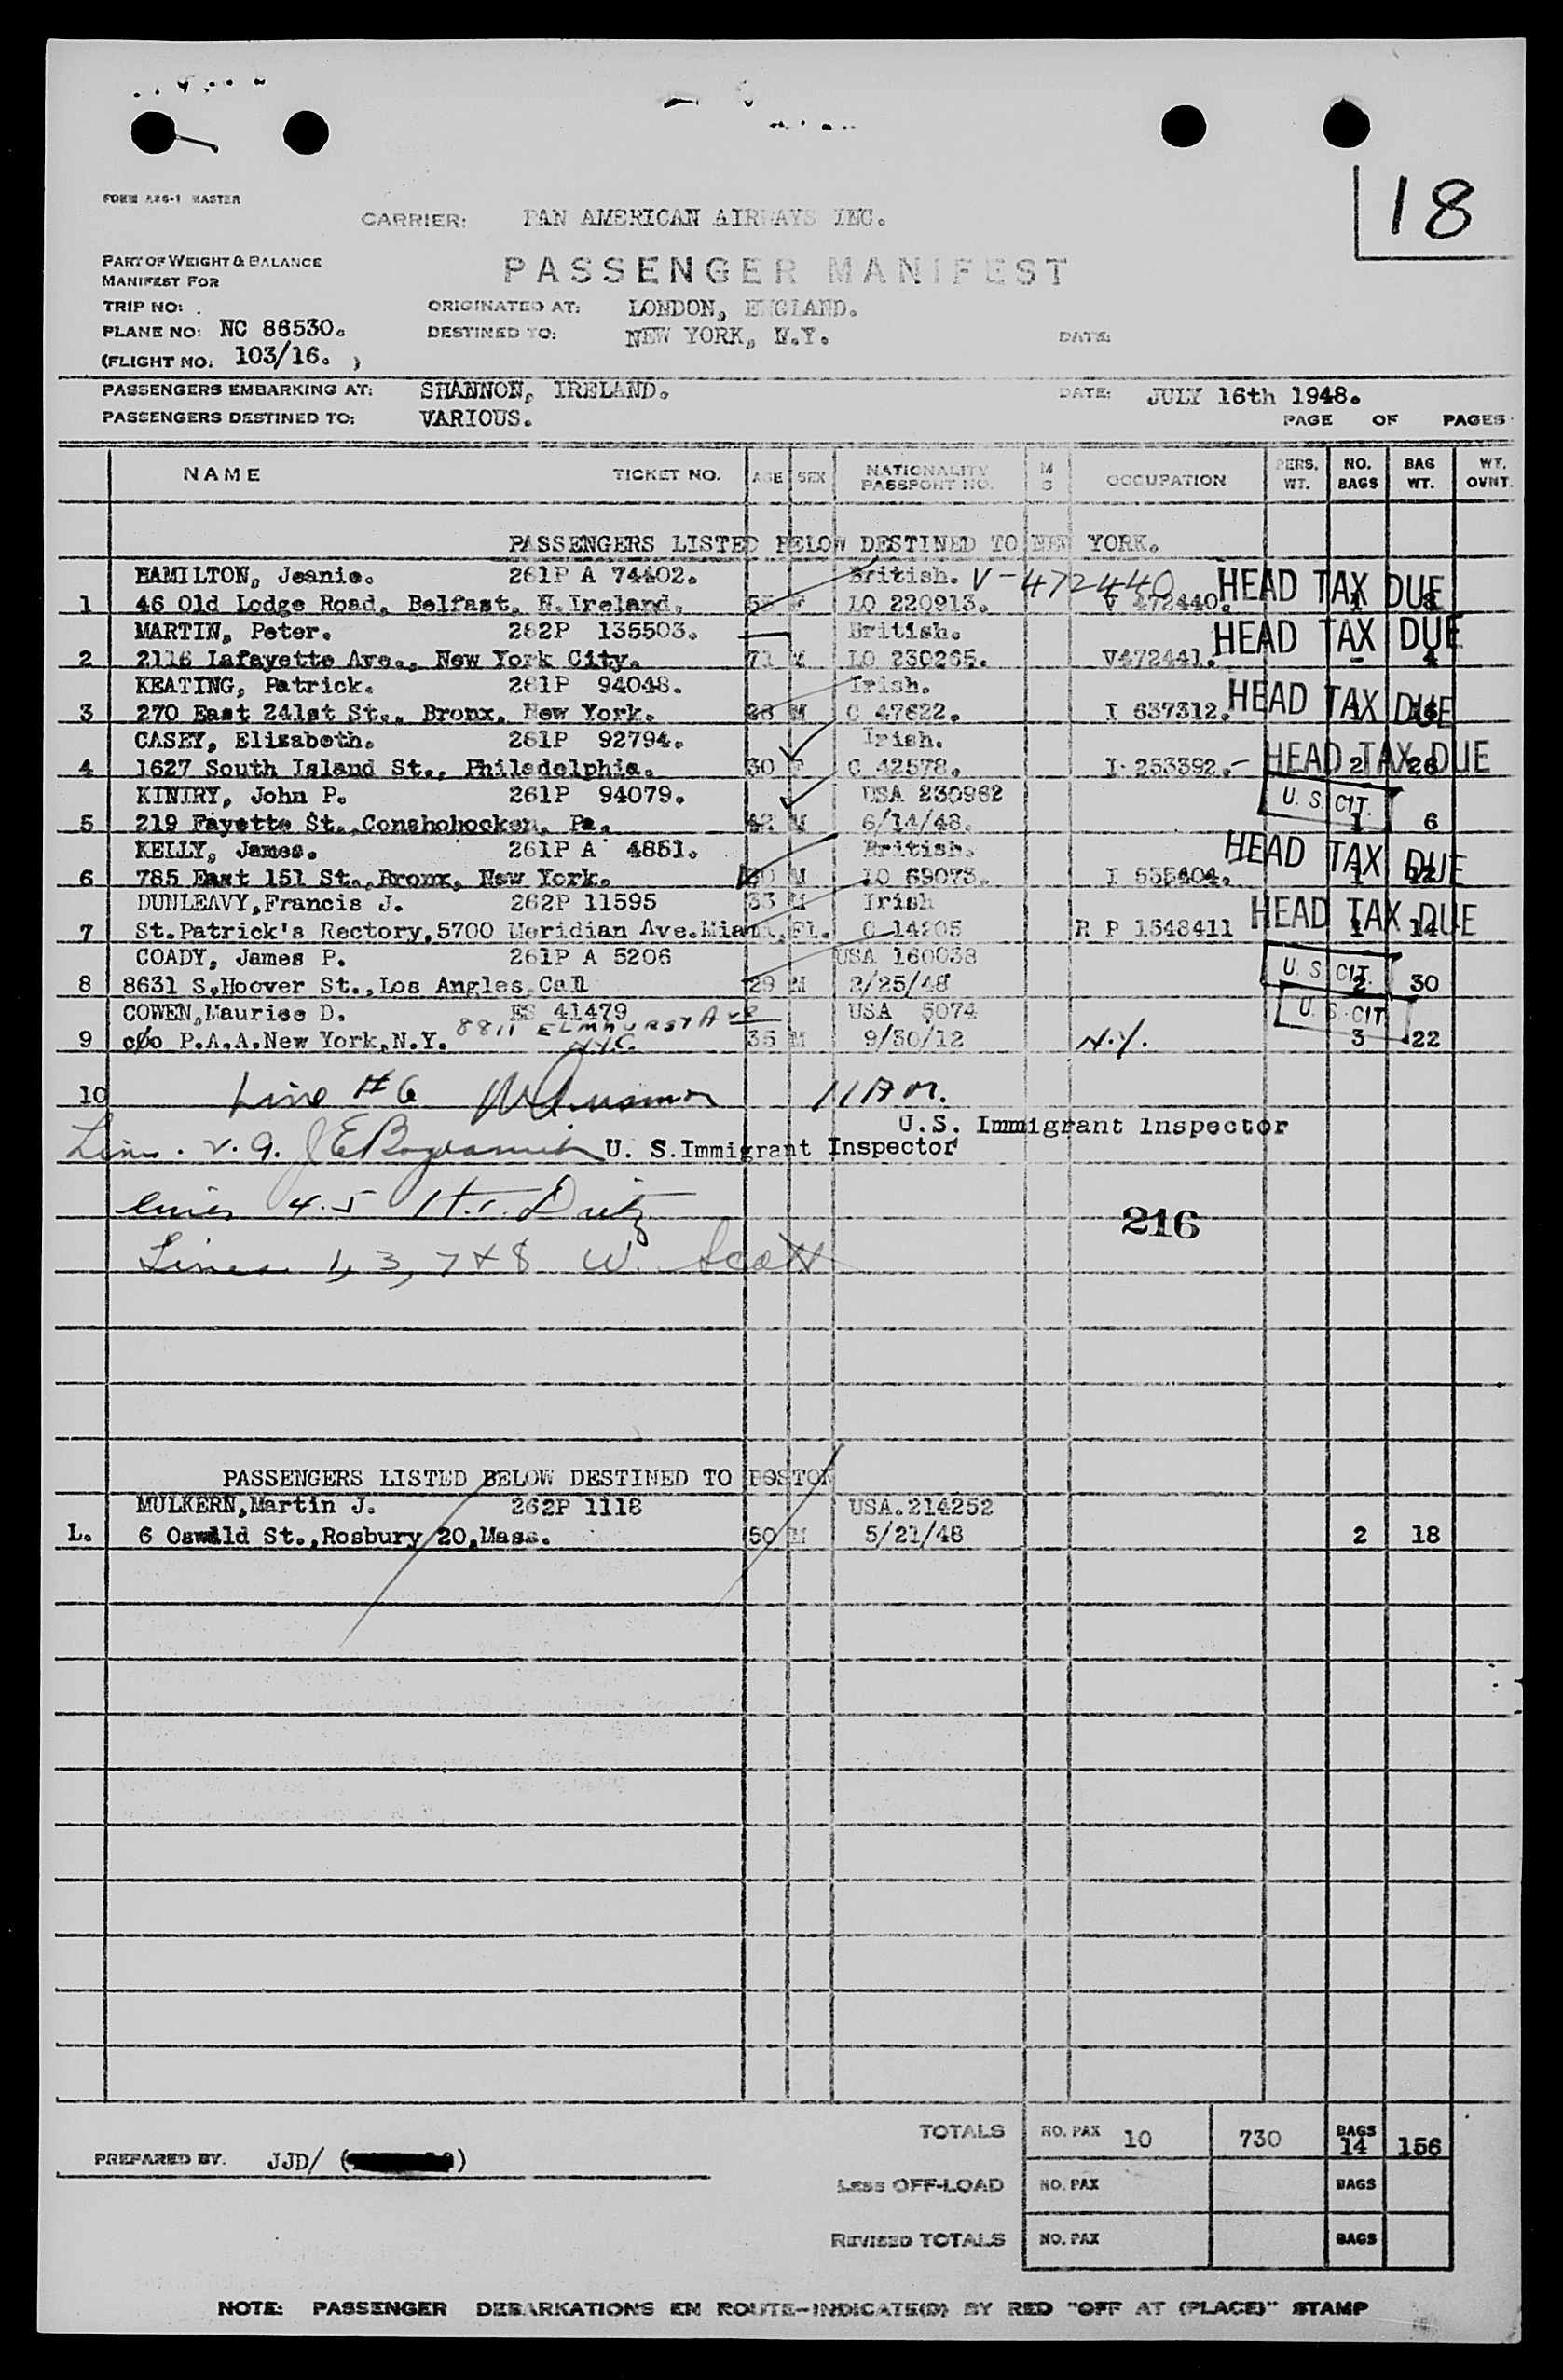 18
FORM A86-1 MASTER
CARRIER: PAN AMERICAN AIRWAYS INC.
PART OF WEIGHT & BALANCE
MANIFEST FOR
PASSENGER MANIFEST
TRIP NO: .
ORIGINATED AT: LONDON, ENGLAND.
PLANE NO: NC 86530.
DESTINED TO: NEW YORK, N.Y. DATE:
(FLIGHT NO: 103/16. )
PASSENGERS EMBARKING AT: SHANNON, IRELAND. DATE: JULY 16th 1948.
PASSENGERS DESTINED TO: VARIOUS. PAGE OF PAGES
NAME TICKET NO. AGE SEX NATIONALITY PASSPORT NO. M S OCCUPATION PERS. WT. NO. BAGS BAG WT. WT. OVNT.
PASSENGERS LISTED BELOW DESTINED TO NEW YORK.
HAMILTON, Jeanie. 261P A 74402. British. V-472440 HEAD TAX DUE
1 46 Old Lodge Road, Belfast, N.Ireland. F LO 220913. V 472440. 1
MARTIN, Peter. 262P 135503. British. HEAD TAX DUE
2 2116 Lafayette Ave., New York City. 71 M LO 230265. V472441. - 4
KEATING, Patrick. 261P 94048. Irish. HEAD TAX DUE
3 270 East 241st St., Bronx, New York. 26 M C 47622. I 637312. 1
CASEY, Elizabeth. 261P 92794. Irish. HEAD TAX DUE
4 1627 South Island St., Philadelphia. 30 F C 42578. I 253392.- 2 26
KINIRY, John P. 261P 94079. USA 230962 U.S. CIT.
5 219 Fayette St.,Conshohocken, Pa. 42 M 6/14/48. 1 6
KELLY, James. 261P A 4851. British. HEAD TAX DUE
6 785 East 151 St.,Bronx, New York. M LO 69073. I 555404. 1 12
DUNLEAVY,Francis J. 262P 11595 33 M Irish HEAD TAX DUE
7 St.Patrick's Rectory,5700 Meridian Ave.Miami,FL. C 14205 R P 1548411 1 14
COADY, James P. 261P A 5206 USA 160038 U.S. CIT.
8 8631 S,Hoover St.,Los Angles,Call 29 M 2/25/48 2 30
COWEN,Maurise D. ES 41479 USA 5074 U.S. CIT
8811 ELMHURST AVE
9 c/o P.A.A.New York,N.Y. NYC 35 M 9/30/12 N.Y. 3 22
10 Line #6 11AM.
U.S. Immigrant Inspector
U. S.Immigrant Inspector
lines 4.5 H.
216
Lines 1, 3, 7 & 8 W. Scott
PASSENGERS LISTED BELOW DESTINED TO BOSTON
MULKERN,Martin J. 262P 1118 USA.214252
L. 6 Oswald St.,Rosbury 20,Mass. 50 M 5/21/48 2 18
TOTALS NO. PAX 10 730 BAGS 14 156
PREPARED BY. JJD/ ( )
Less OFF-LOAD NO. PAX BAGS
REVISED TOTALS NO. PAX BAGS
NOTE: PASSENGER DEBARKATIONS EN ROUTE-INDICATE(D) BY RED "OFF AT (PLACE)" STAMP